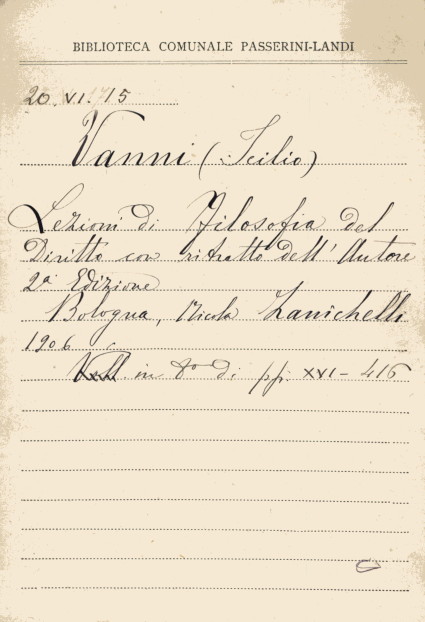 BIBLIOTECA COMUNALE PASSERINI-LANDI
20. VI. 15
Vanni (Icilio)
Lezioni di Filosofia del
Diritto con ritratto dell' Autore
2ª Edizione
Bologna, Nicola Zanichelli
1906
in 8º di pp. XVI - 416